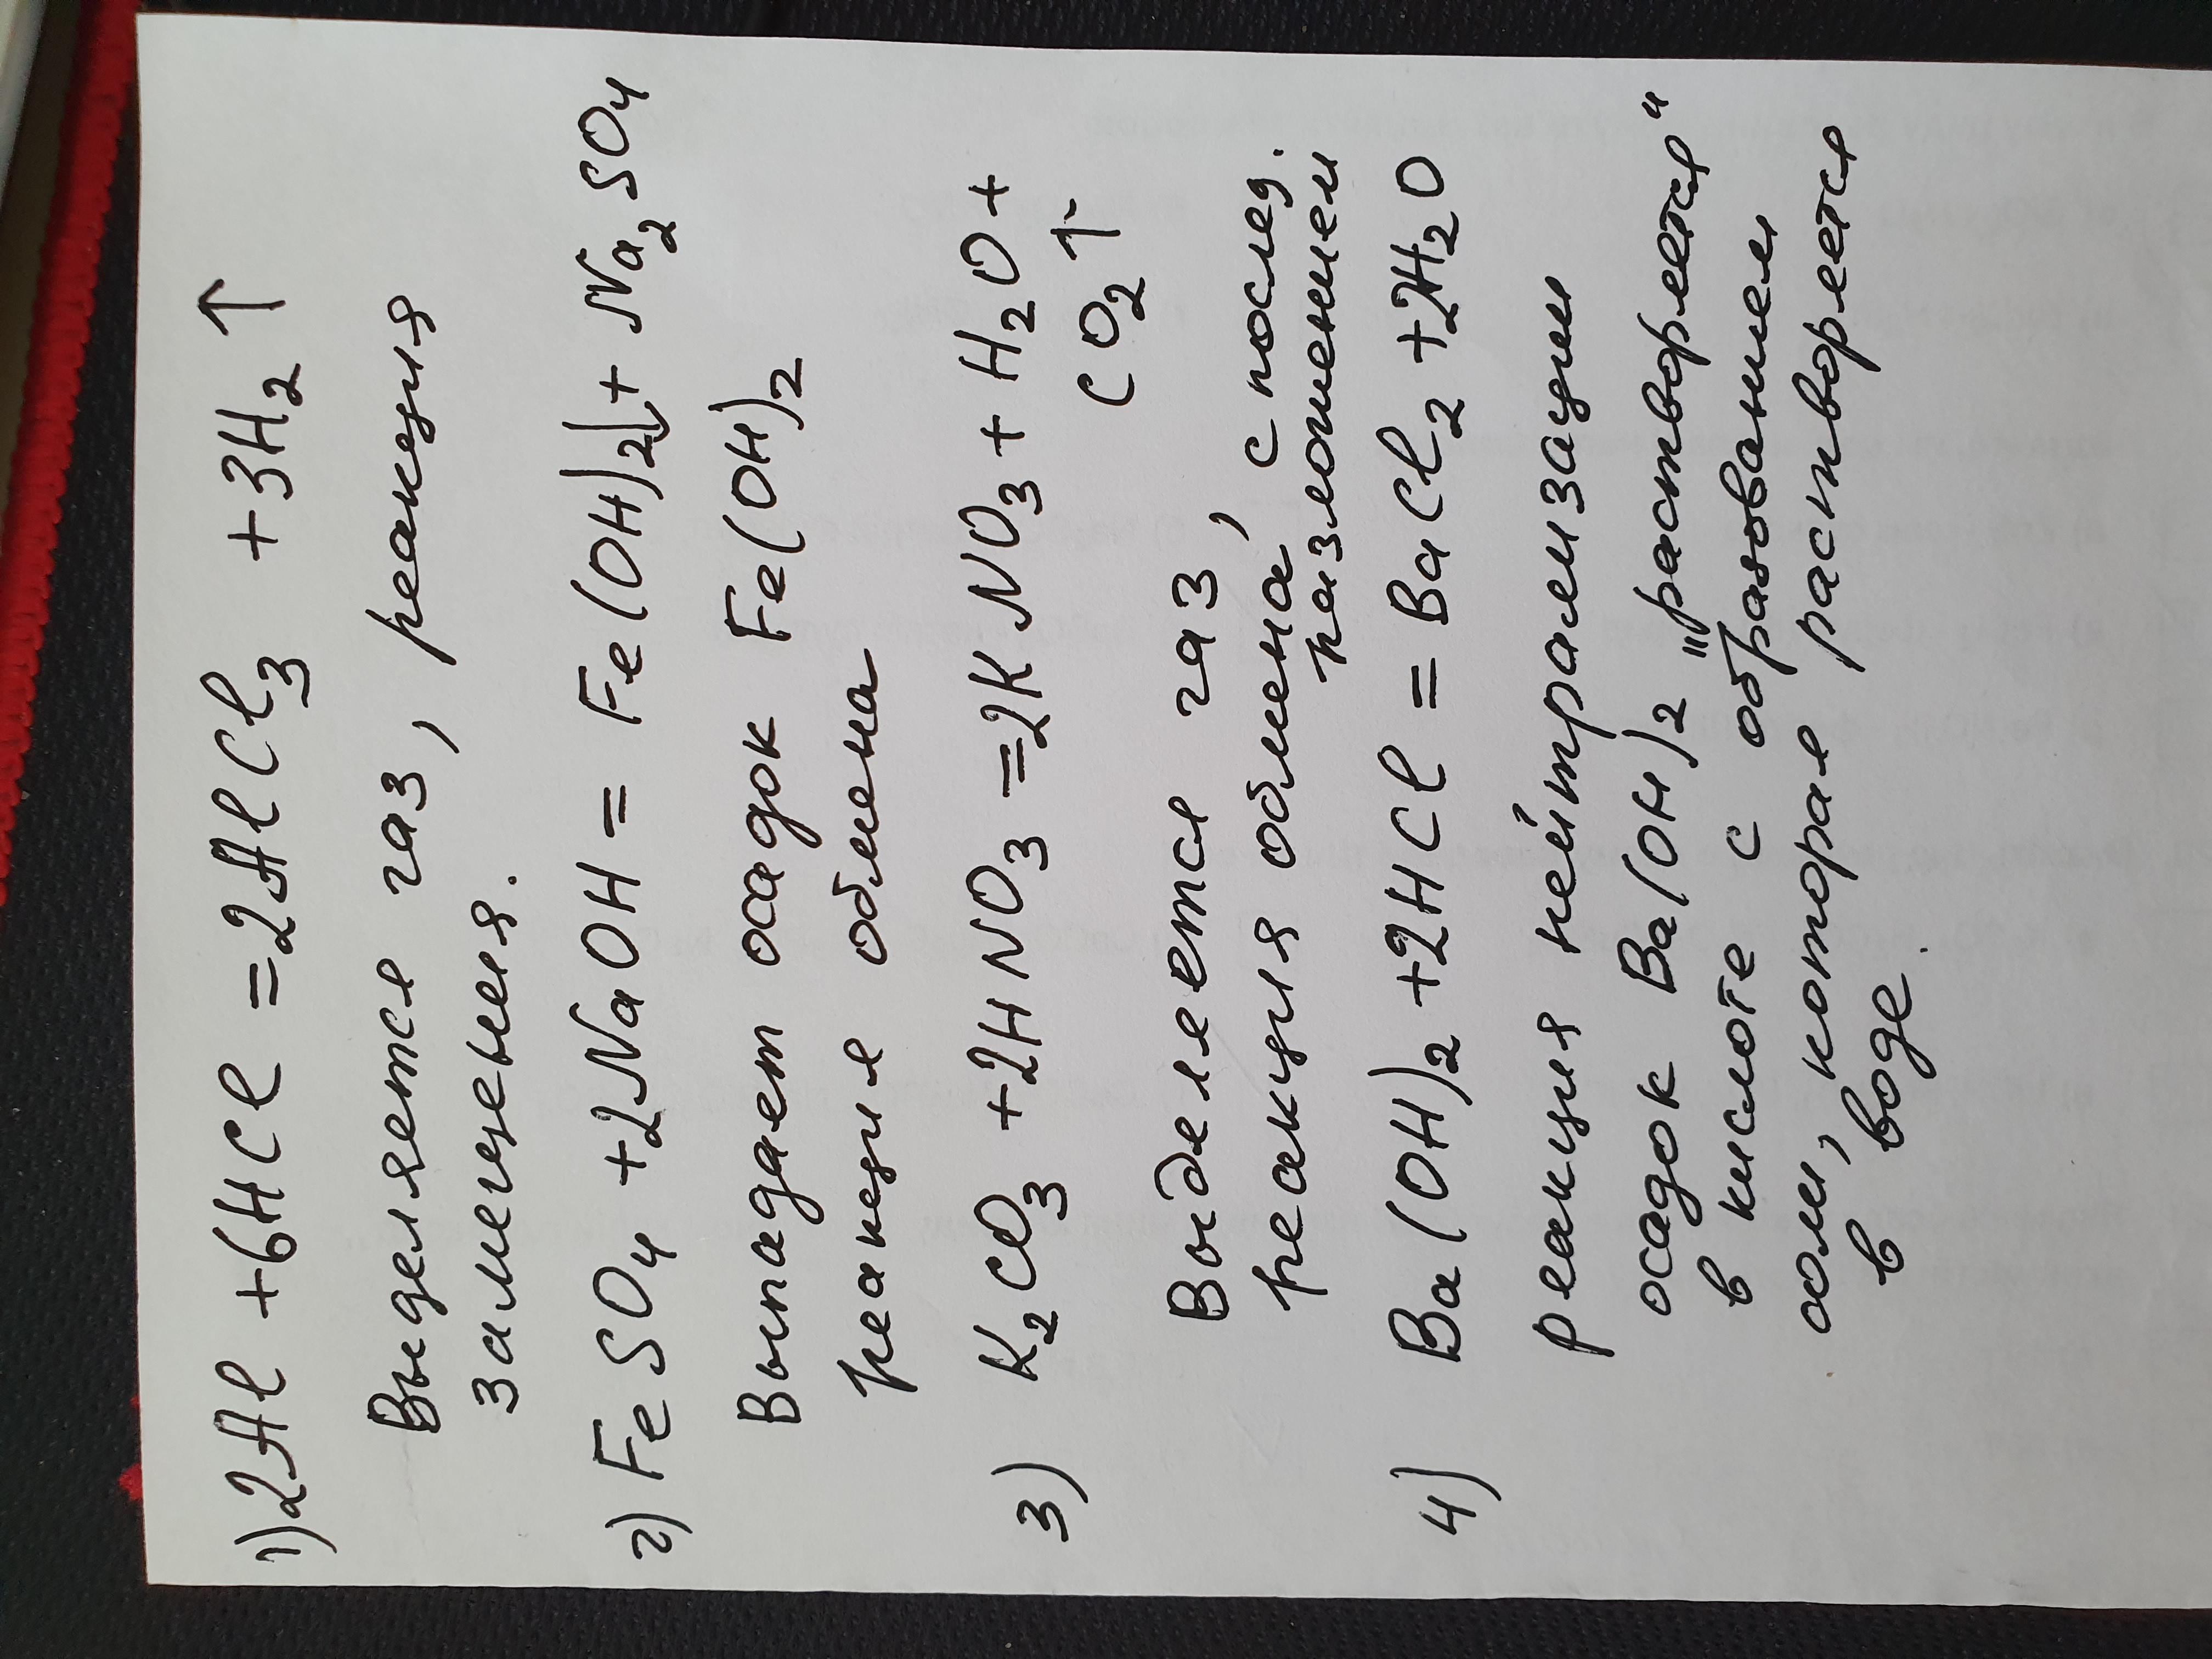 1) 2Al + 6HCl = 2AlCl₃ + 3H₂ ↑
Выделяется газ, реакция
замещения.
2) FeSO₄ + 2NaOH = Fe(OH)₂↓ + Na₂SO₄
Выпадает осадок Fe(OH)₂
реакция обмена
3) K₂CO₃ + 2HNO₃ = 2KNO₃ + H₂O +
CO₂ ↑
Выделяется газ,
реакция обмена, с послед.
разложением
4) Ba(OH)₂ + 2HCl = BaCl₂ + 2H₂O
реакция нейтрализации
осадок Ba(OH)₂ „растворяется“
в кислоте с образованием
соли, которая растворяется
в воде.